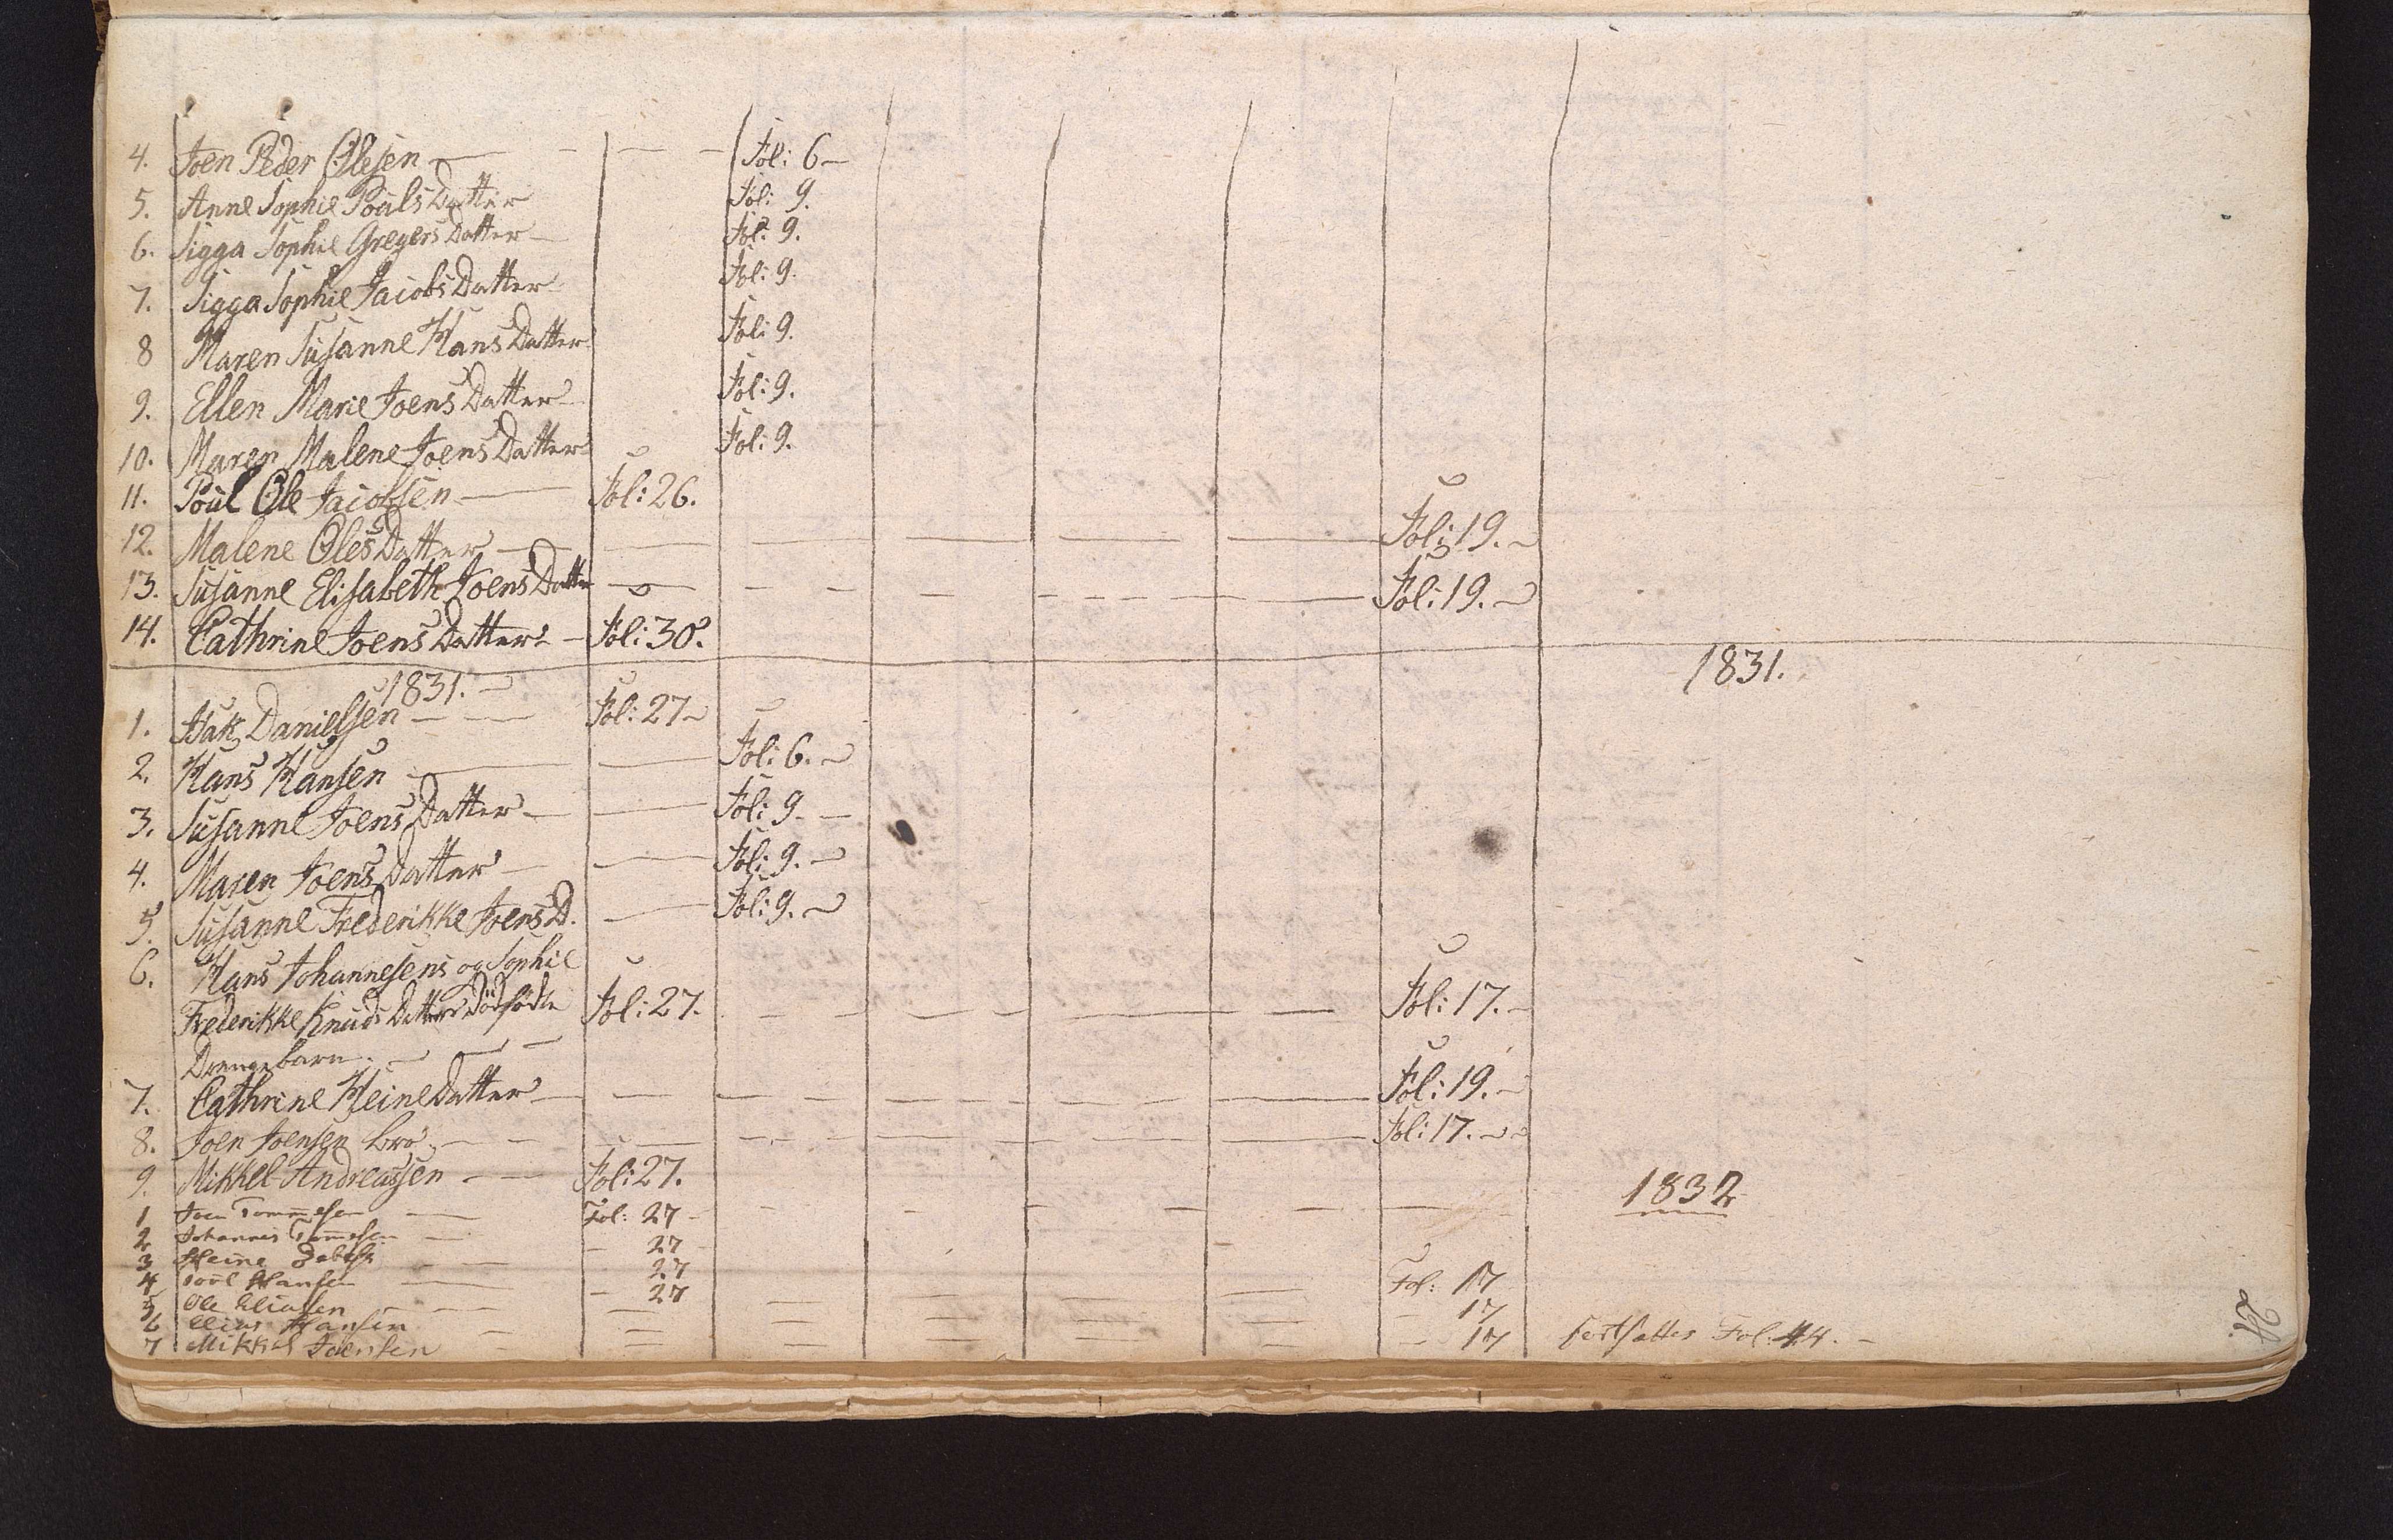 4. Joen Peder Olesen — — — Fol: 6 —
5. Anne Sophie Pouls Datter Fol: 9.
6. Sigga Sophie Gregers Datter — Fol: 9.
7. Sigga Sophie Jacobs Datter Fol: 9.
8 Maren Susanne Hans Datter Fol: 9.
9. Ellen Marie Joens Datter Fol: 9.
10. Maren Malene Joens Datter Fol: 9.
11. Poul Ole Jacobsen — Fol: 26.
12. Malene Oles Datter — — — — — — Fol: 19. —
13. Susanne Elisabeth Joens Datter — — — — — — Fol: 19. —
14. Cathrine Joens Datter — Fol: 30.
1831. — 1831.
1. Isak Danielsen — — Fol: 27 —
2. Hans Hansen — — Fol: 6. —
3. Susanne Joens Datter — — Fol: 9. —
4. Maren Joens Datter — — Fol: 9. —
5. Susanne Frederikke Joens D. — Fol: 9. —
6. Hans Johannesens og Sophie
Frederikke Knuds Datters Dödfödte Fol: 27. — — — — Fol: 17. —
Drengebarn. — — —
7. Cathrine Heine Datter — — — — — — Fol: 19. —
8. Joen Joensen Bro. — — — — — — Fol: 17. —
9. Mikkel Andreassen — — Fol: 27.
1832
1 Joen Tommesen — Fol: 27 — — — — —
2 Johannes Tommesen — — 27
3 Heine — — 27
4 Poul Hansen — — 27 Fol: 17
5 Ole Eliasen — — — — — — — 17
6 Elias Hansen — — — — — — 17
7 Mikkel Joensen — — — — —
fortsættes Fol. 44. —